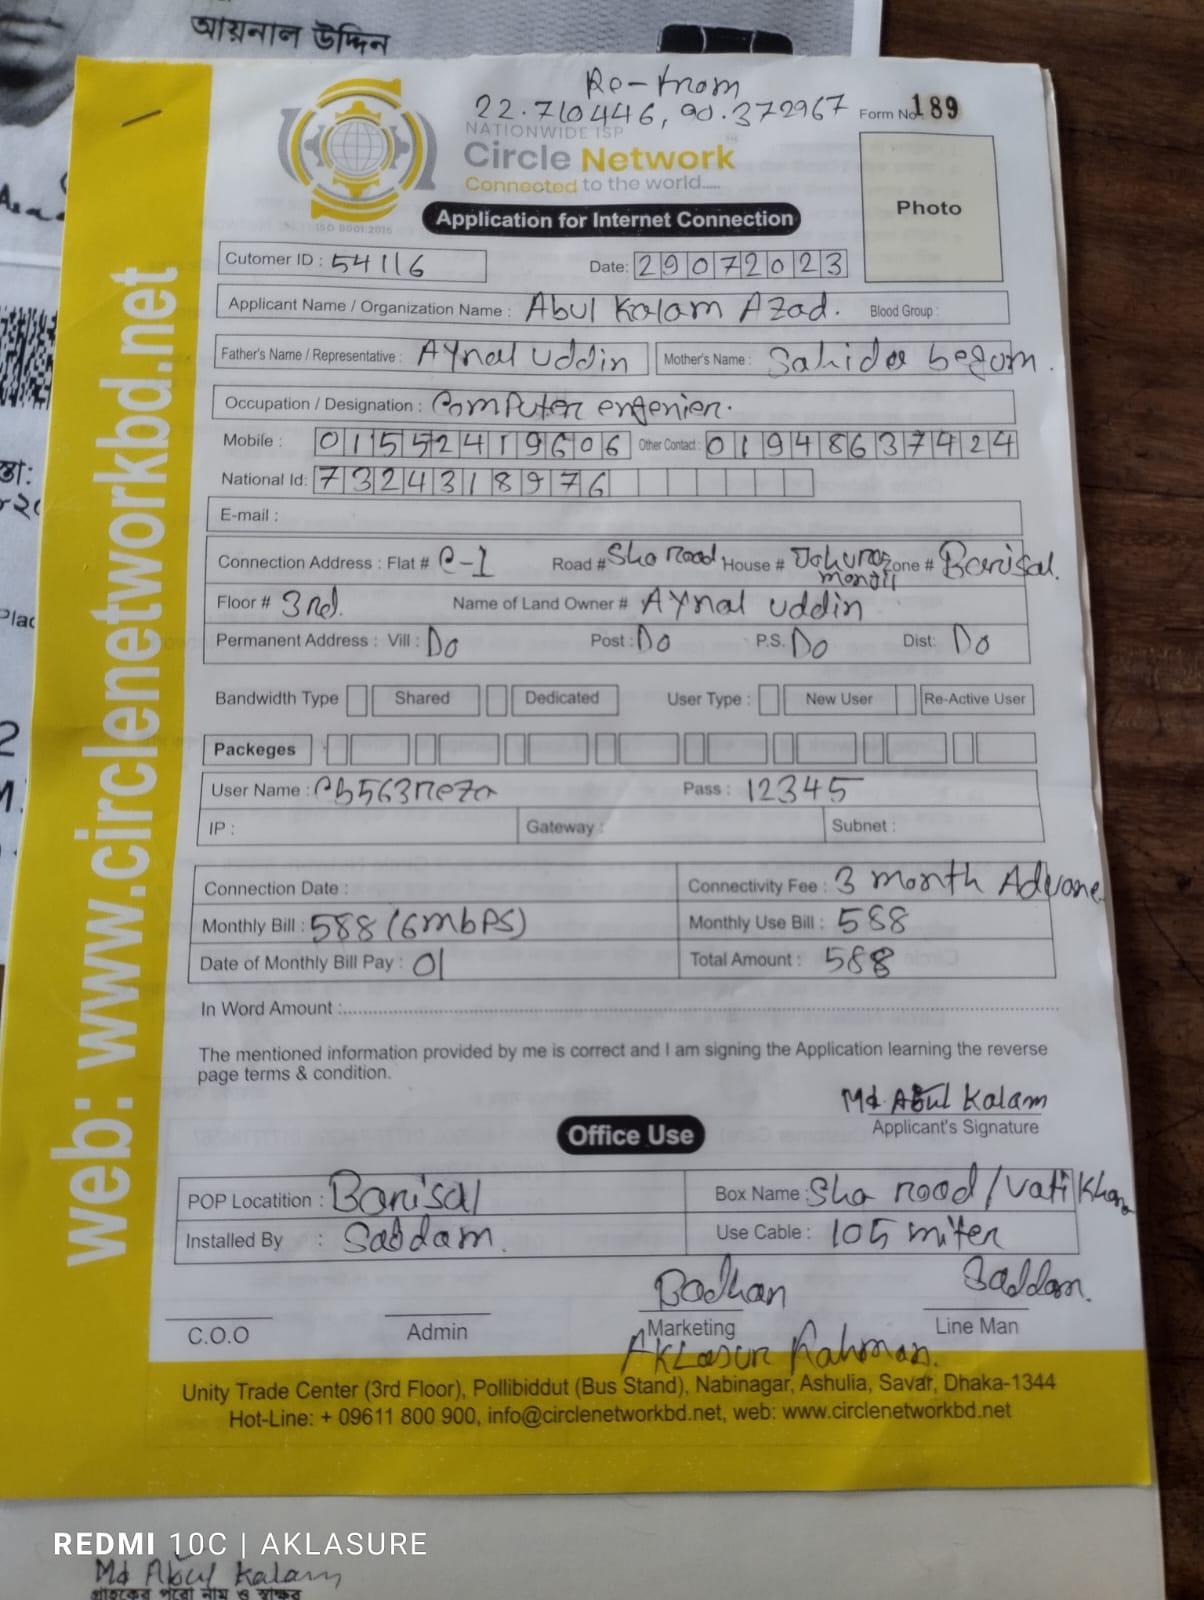 আয়নাল উদ্দিন
Re-from
22.710446, 90.372967
Form No 189
NATIONWIDE ISP
Circle Network
Connected to the world.....
ISO 9001:2015
Photo
Application for Internet Connection
Cutomer ID : 54116 Date: 29072023
Applicant Name / Organization Name : Abul Kalam Azad. Blood Group :
Father's Name / Representative : Aynal uddin Mother's Name : Sahida begom.
Occupation / Designation : Computer engenier.
Mobile : 01552419606 Other Contact : 01948637424
National Id: 7324318976
E-mail :
Connection Address : Flat # C-1 Road # Sha road House # Johura monjil Zone # Barisal.
Floor # 3rd. Name of Land Owner # Aynal uddin
Permanent Address : Vill : Do Post : Do P.S. Do Dist: Do
Bandwidth Type Shared Dedicated User Type : New User Re-Active User
Packeges
User Name : cb563reza Pass : 12345
IP : Gateway : Subnet :
Connection Date : Connectivity Fee : 3 month Advane
Monthly Bill : 588 (6mbps) Monthly Use Bill : 588
Date of Monthly Bill Pay : 01 Total Amount : 588
In Word Amount :
The mentioned information provided by me is correct and I am signing the Application learning the reverse
page terms & condition.
Md. Abul Kalam
Applicant's Signature
Office Use
POP Locatition : Barisal Box Name : Sha road / Vati Khana
Installed By : Saddam. Use Cable : 105 miter
Badhan Saddam.
C.O.O Admin Marketing Line Man
Aklasur Rahman.
Unity Trade Center (3rd Floor), Pollibiddut (Bus Stand), Nabinagar, Ashulia, Savar, Dhaka-1344
Hot-Line: + 09611 800 900, info@circlenetworkbd.net, web: www.circlenetworkbd.net
web: www.circlenetworkbd.net
REDMI 10C | AKLASURE
Md Abul Kalam
গ্রাহকের পুরো নাম ও স্বাক্ষর